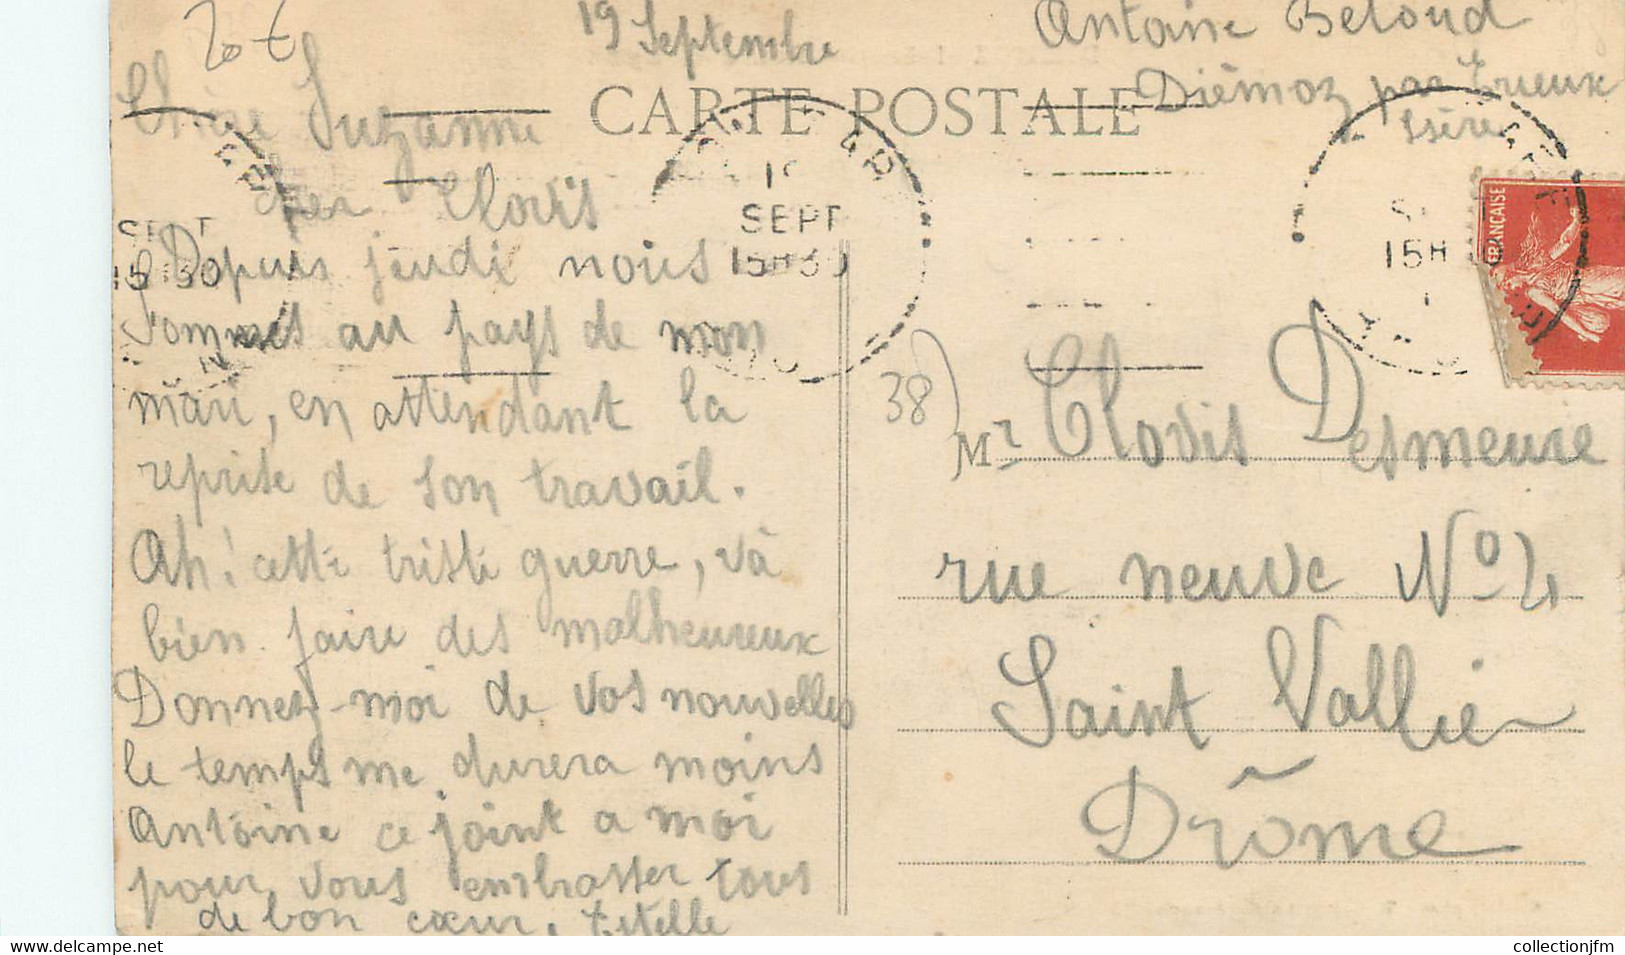 20 €
19 Septembre
Antoine Beloud
Diémoz par Heyrieux
Isère
CARTE POSTALE
Chère Suzanne
cher Clovis
Depuis jeudi nous
sommes au pays de mon
mari, en attendant la
reprise de son travail.
Ah! cette triste guerre, va
bien faire des malheureux
Donnez-moi de vos nouvelles
le temps me durera moins
Antoine ce joint a moi
pour vous embrasser tous
de bon cœur. Estelle
SEPT
15 30
19
SEPT
15H30
15H 30
FRANÇAISE
38
Mr Clovis Desmeure
rue neuve No 4
Saint Vallier
Drôme
collectionjfm